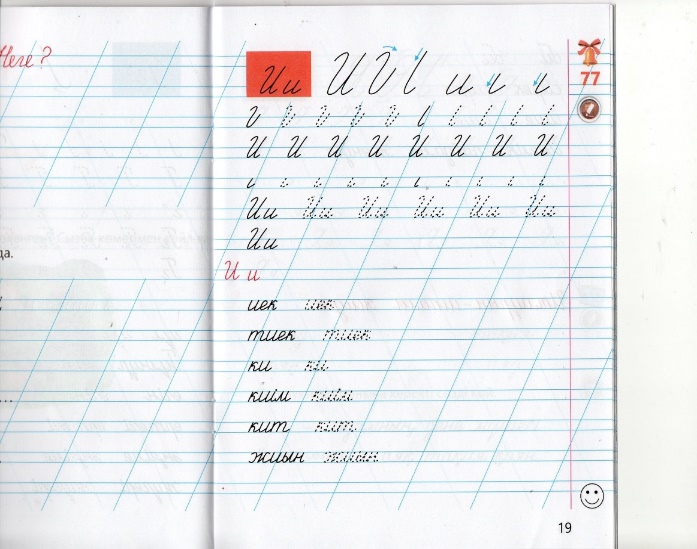 Неге ?
Ии И и
77
И И И И И И И И
Ии Ии Ии Ии Ии Ии
Ии
И и
да.
иек иек
тиек тиек
ки ки
киім киім
...
кит кит
жиын жиын
19